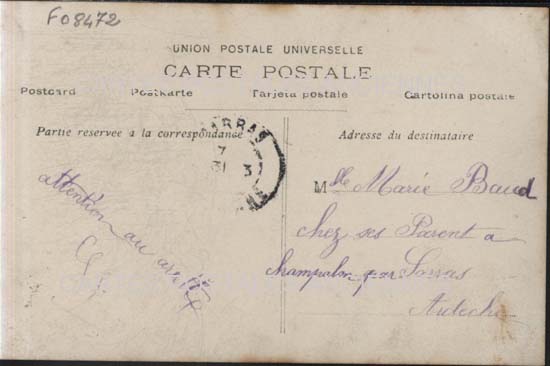 F08472
UNION POSTALE UNIVERSELLE
CARTE POSTALE
Postcard Postkarte Tarjeta postale Cartolina postale
Partie reservee a la correspondance
Adresse du destinataire
SARRAS
7
31 3
attention au
Mlle Marie Baud
chez ses Parent a
par Sarras
Ardeche